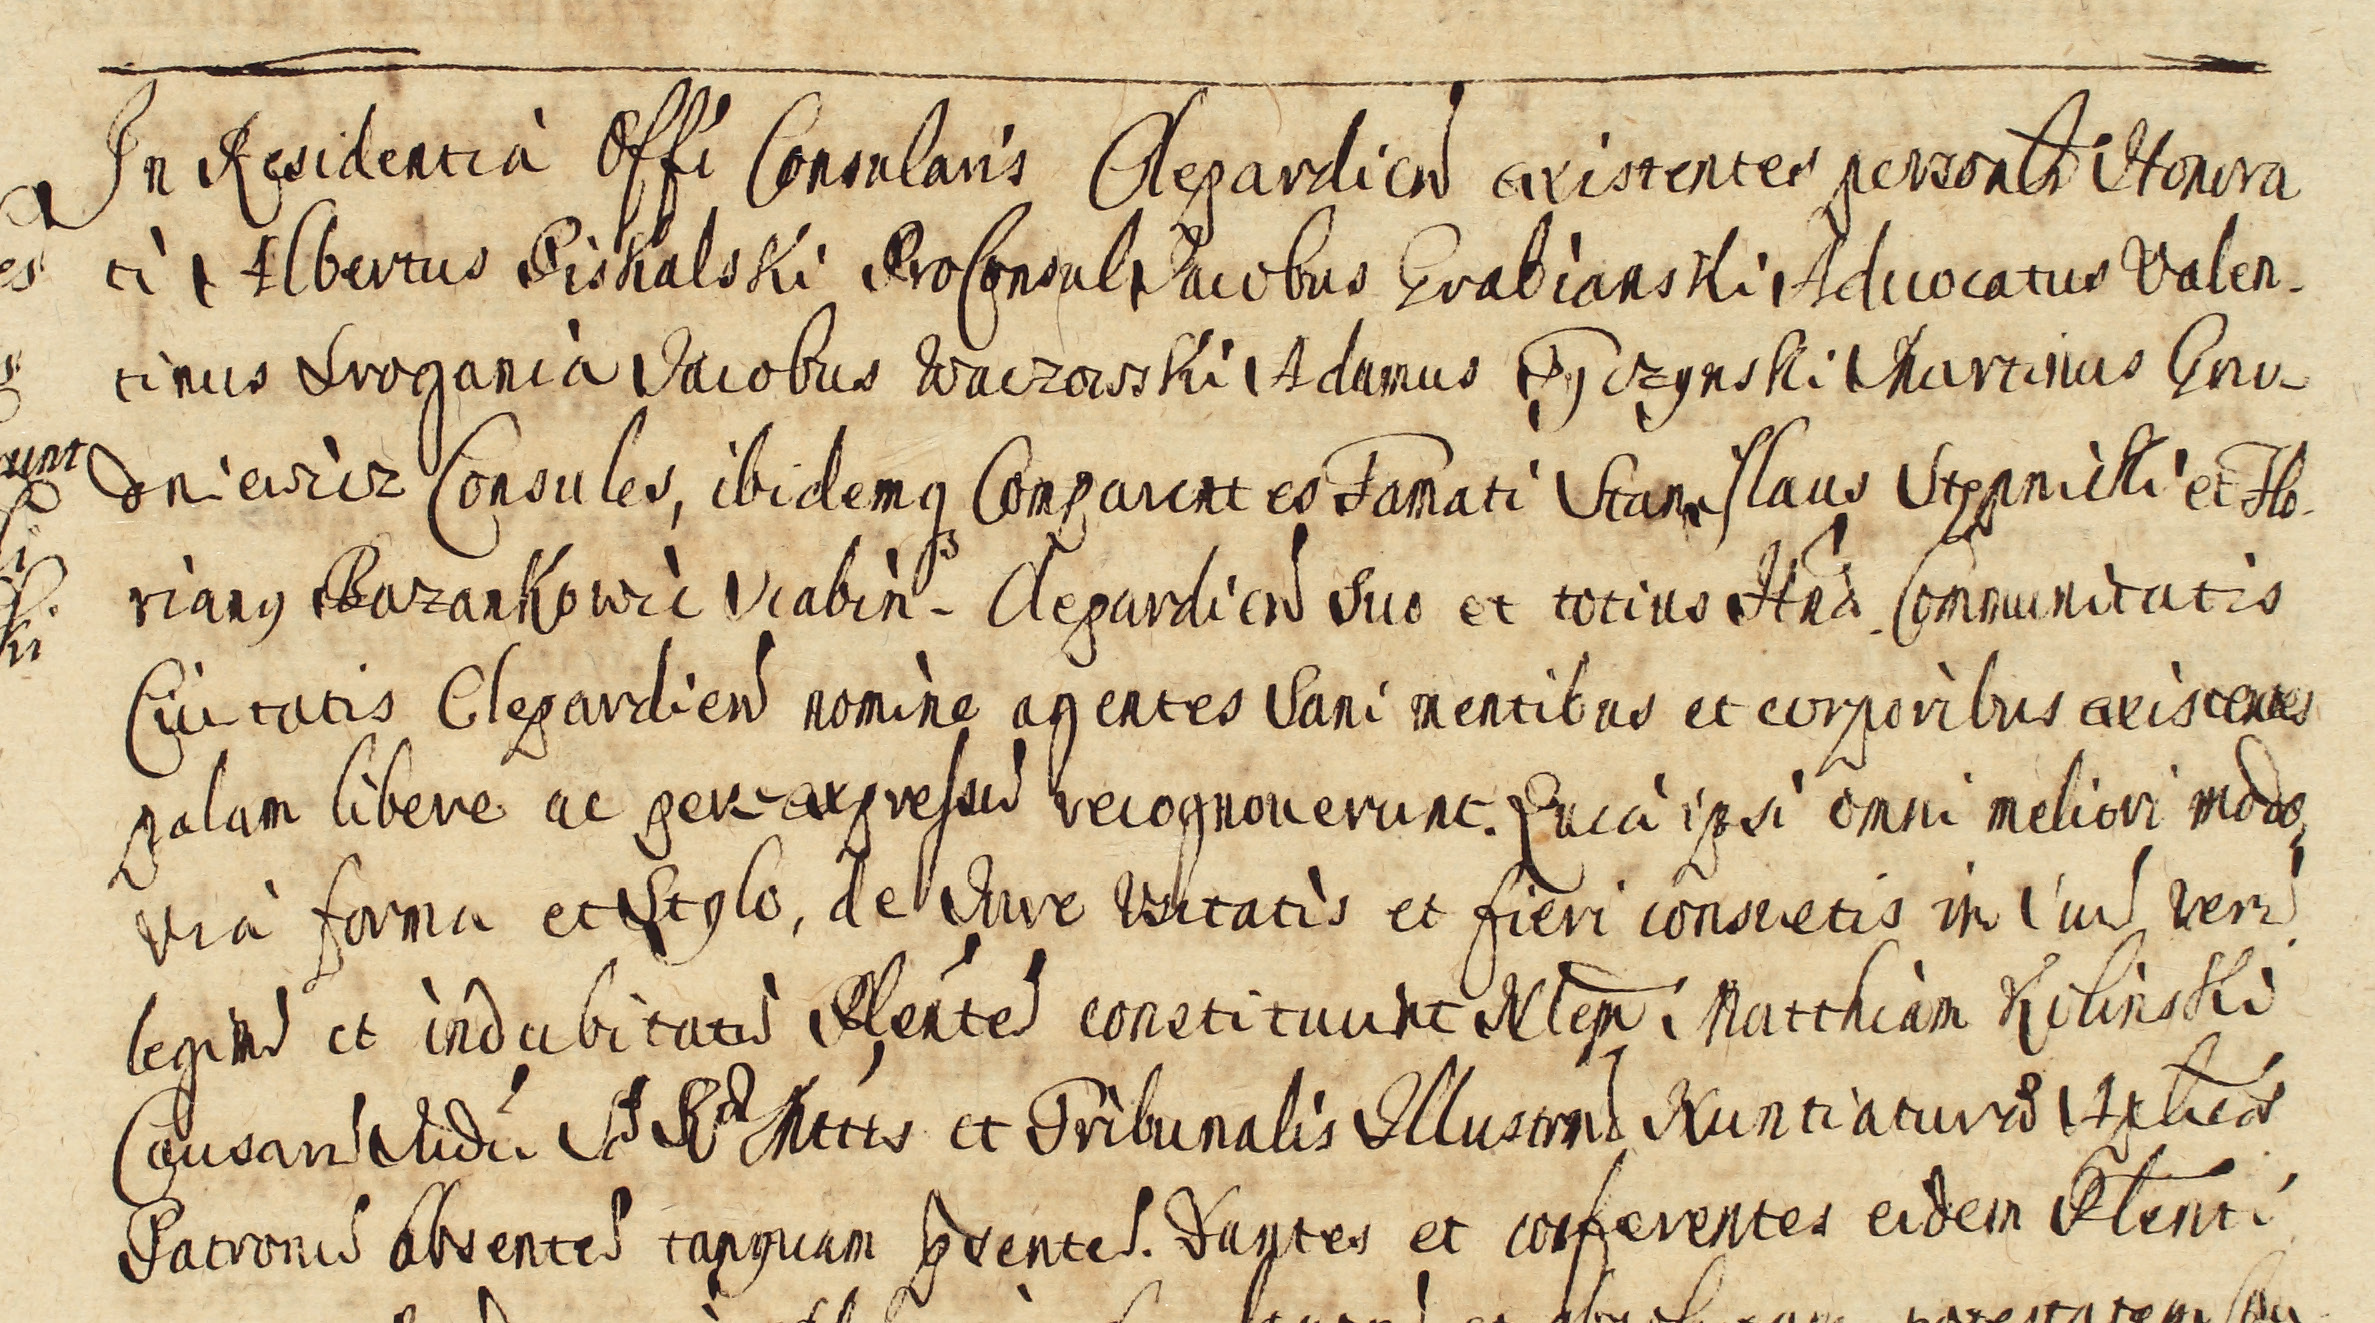 In Residentia Offi Consularis Clepardien existentes personlr Honora
ti Albertus Piskalski ProConsul Jacobus Grabianski Advocatus Valen-
tinus Srogania Jacobus Waczowski Adamus Tyczynski Martinus Gru-
dniewicz Consules, ibidemq Comparentes Famati Stanislaus Stepnicki et Flo-
rianq Bazankowic Scabin- Clepardien Suo et totius Communitatis
Civitatis Clepardien nomine agentes Sani mentibus et corporibus existentes
palam libere ac per expressu recognoverunt. Quia ipsi omni meliori modo,
via forma et Stylo, de Jure Usitatis et fieri consuetis in suu veru
legim et indubitatu Plente constituunt Matthiam Kolinski
Causaru Judii et Tribunalis Illustrm Nuntiatura Aplica
Patronu Absente tanquam psente. Dantes et conferentes eidem Plenti
potestatem